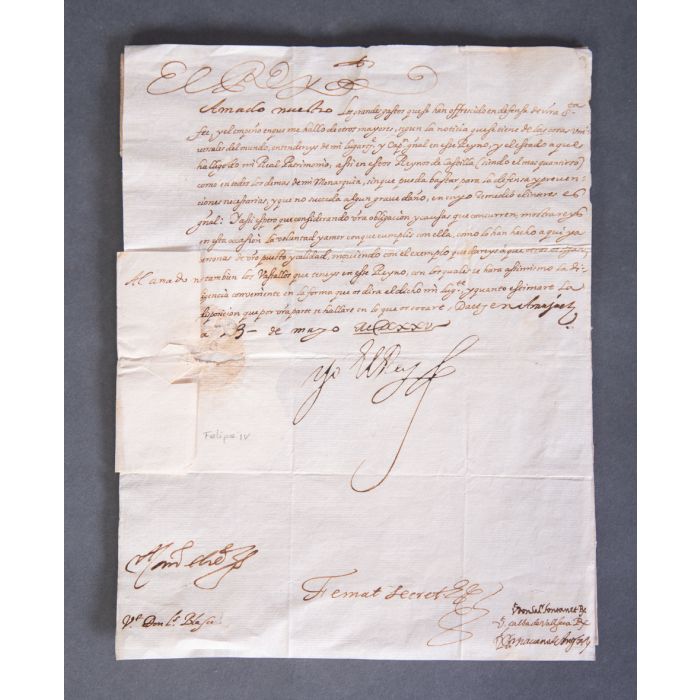 El Rey
Amado nuestro Los grandes gastos que se han offrecido en defensa de
fee, y el empeño en que me hallo de otros mayores, segun la noticia que se tiene de las cosas
versales del mundo, entendereys de mi lugart.e y Cap. gñal en esse Reyno, y el estado a que
ha llegado mi Real Patrimonio, assi en estos Reynos de Castilla,
como en todos los demas de mi Monarquia, sin que pueda bastar para la defensa y preuen-
ciones necessarias, y que no suceda algun graue daño, en cuyo remedio el interes es
gñal: Y assi espero que considerando vra obligacion y causas que concurren, mostrareys
en esta occasion la voluntad y amor con que cumplis con ella, como lo han hecho aqui ya
personas de vro puesto y calidad, mouiendo con el exemplo que dareys a que otros os sigan,
Al amado n
tambien los Vassallos que teneys en esse Reyno, con los quales se hara assimismo la di-
ligencia conueniente en la forma que os dira el dicho mi lugte. y quanto estimare la
disposicion que por vra parte se hallare en lo que os tocare, Dat. en Aranjuez
a 23 de mayo MDCXXV
Yo El Rey
Felipe IV
Femat Secret
Vt Don